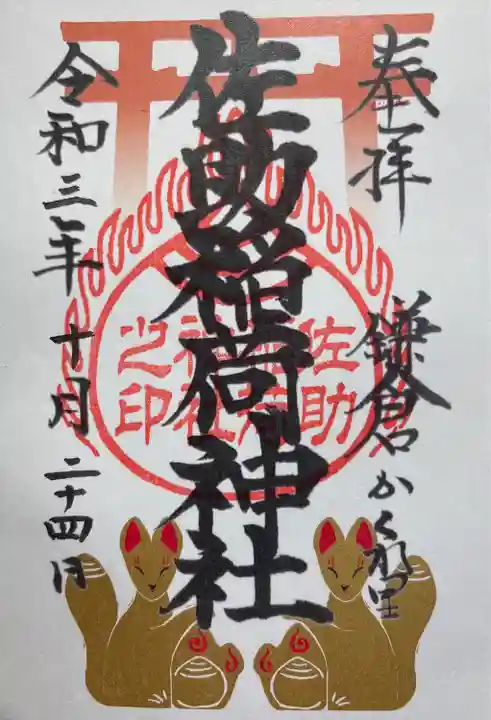 奉拝
鎌倉かくれ里
佐助稲荷神社
佐助稲荷神社之印
令和三年 十月 二十四日